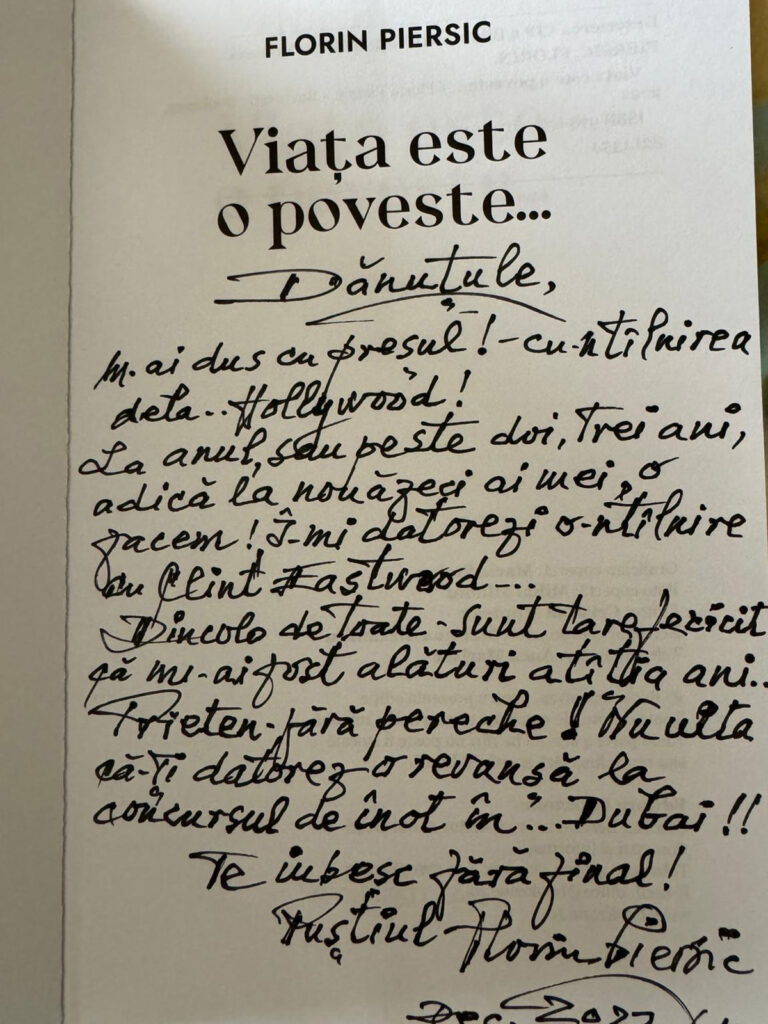 FLORIN PIERSIC
Viața este
o poveste...
Dănuțule,
M-ai dus cu preșul! - cu-ntîlnirea
dela.. Hollywood!
La anul, sau peste doi, trei ani,
adică la nouăzeci ai mei, o
facem! Î-mi datorezi o-ntîlnire
cu Clint Eastwood...
Dincolo de toate - sunt tare fericit
că mi-ai fost alături atîția ani..
Prieten-fără pereche! Nu uita
că-ți datorez-o revanșă la
concursul de înot în"... Dubai!!
Te iubesc fără final!
Puștiul Florin Piersic
Dec.